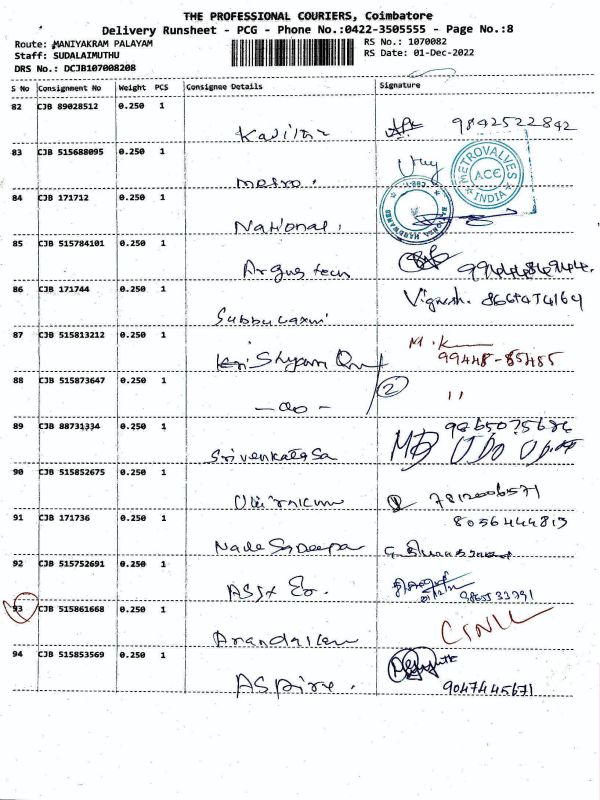 THE PROFESSIONAL COURIERS, Coimbatore
Delivery Runsheet - PCG - Phone No.:0422-3505555 - Page No.:8
Route: MANIYAKRAM PALAYAM
Staff: SUDALAIMUTHU
DRS No.: DCJB107008208
RS No.: 1070082
RS Date: 01-Dec-2022
S No Consignment No Weight PCS Consignee Details Signature
82 CJB 89028512 0.250 1
9842522842
83 CJB 515688095 0.250 1
metro.
METROVALVES
ACE
INDIA
84 CJB 171712 0.250 1
National.
85 CJB 515784101 0.250 1
Argus tech
86 CJB 171744 0.250 1
Subbulaxmi
Vignesh. 8667474164
87 CJB 515813212 0.250 1
Shyam
M.K
99448-85485
88 CJB 515873647 0.250 1
- do -
2
"
89 CJB 88731334 0.250 1
Srivenkatesa
9865075686
90 CJB 515852675 0.250 1
7812006571
91 CJB 171736 0.250 1
8056444813
92 CJB 515752691 0.250 1
93 CJB 515861668 0.250 1
94 CJB 515853569 0.250 1
Aspire.
9047445671